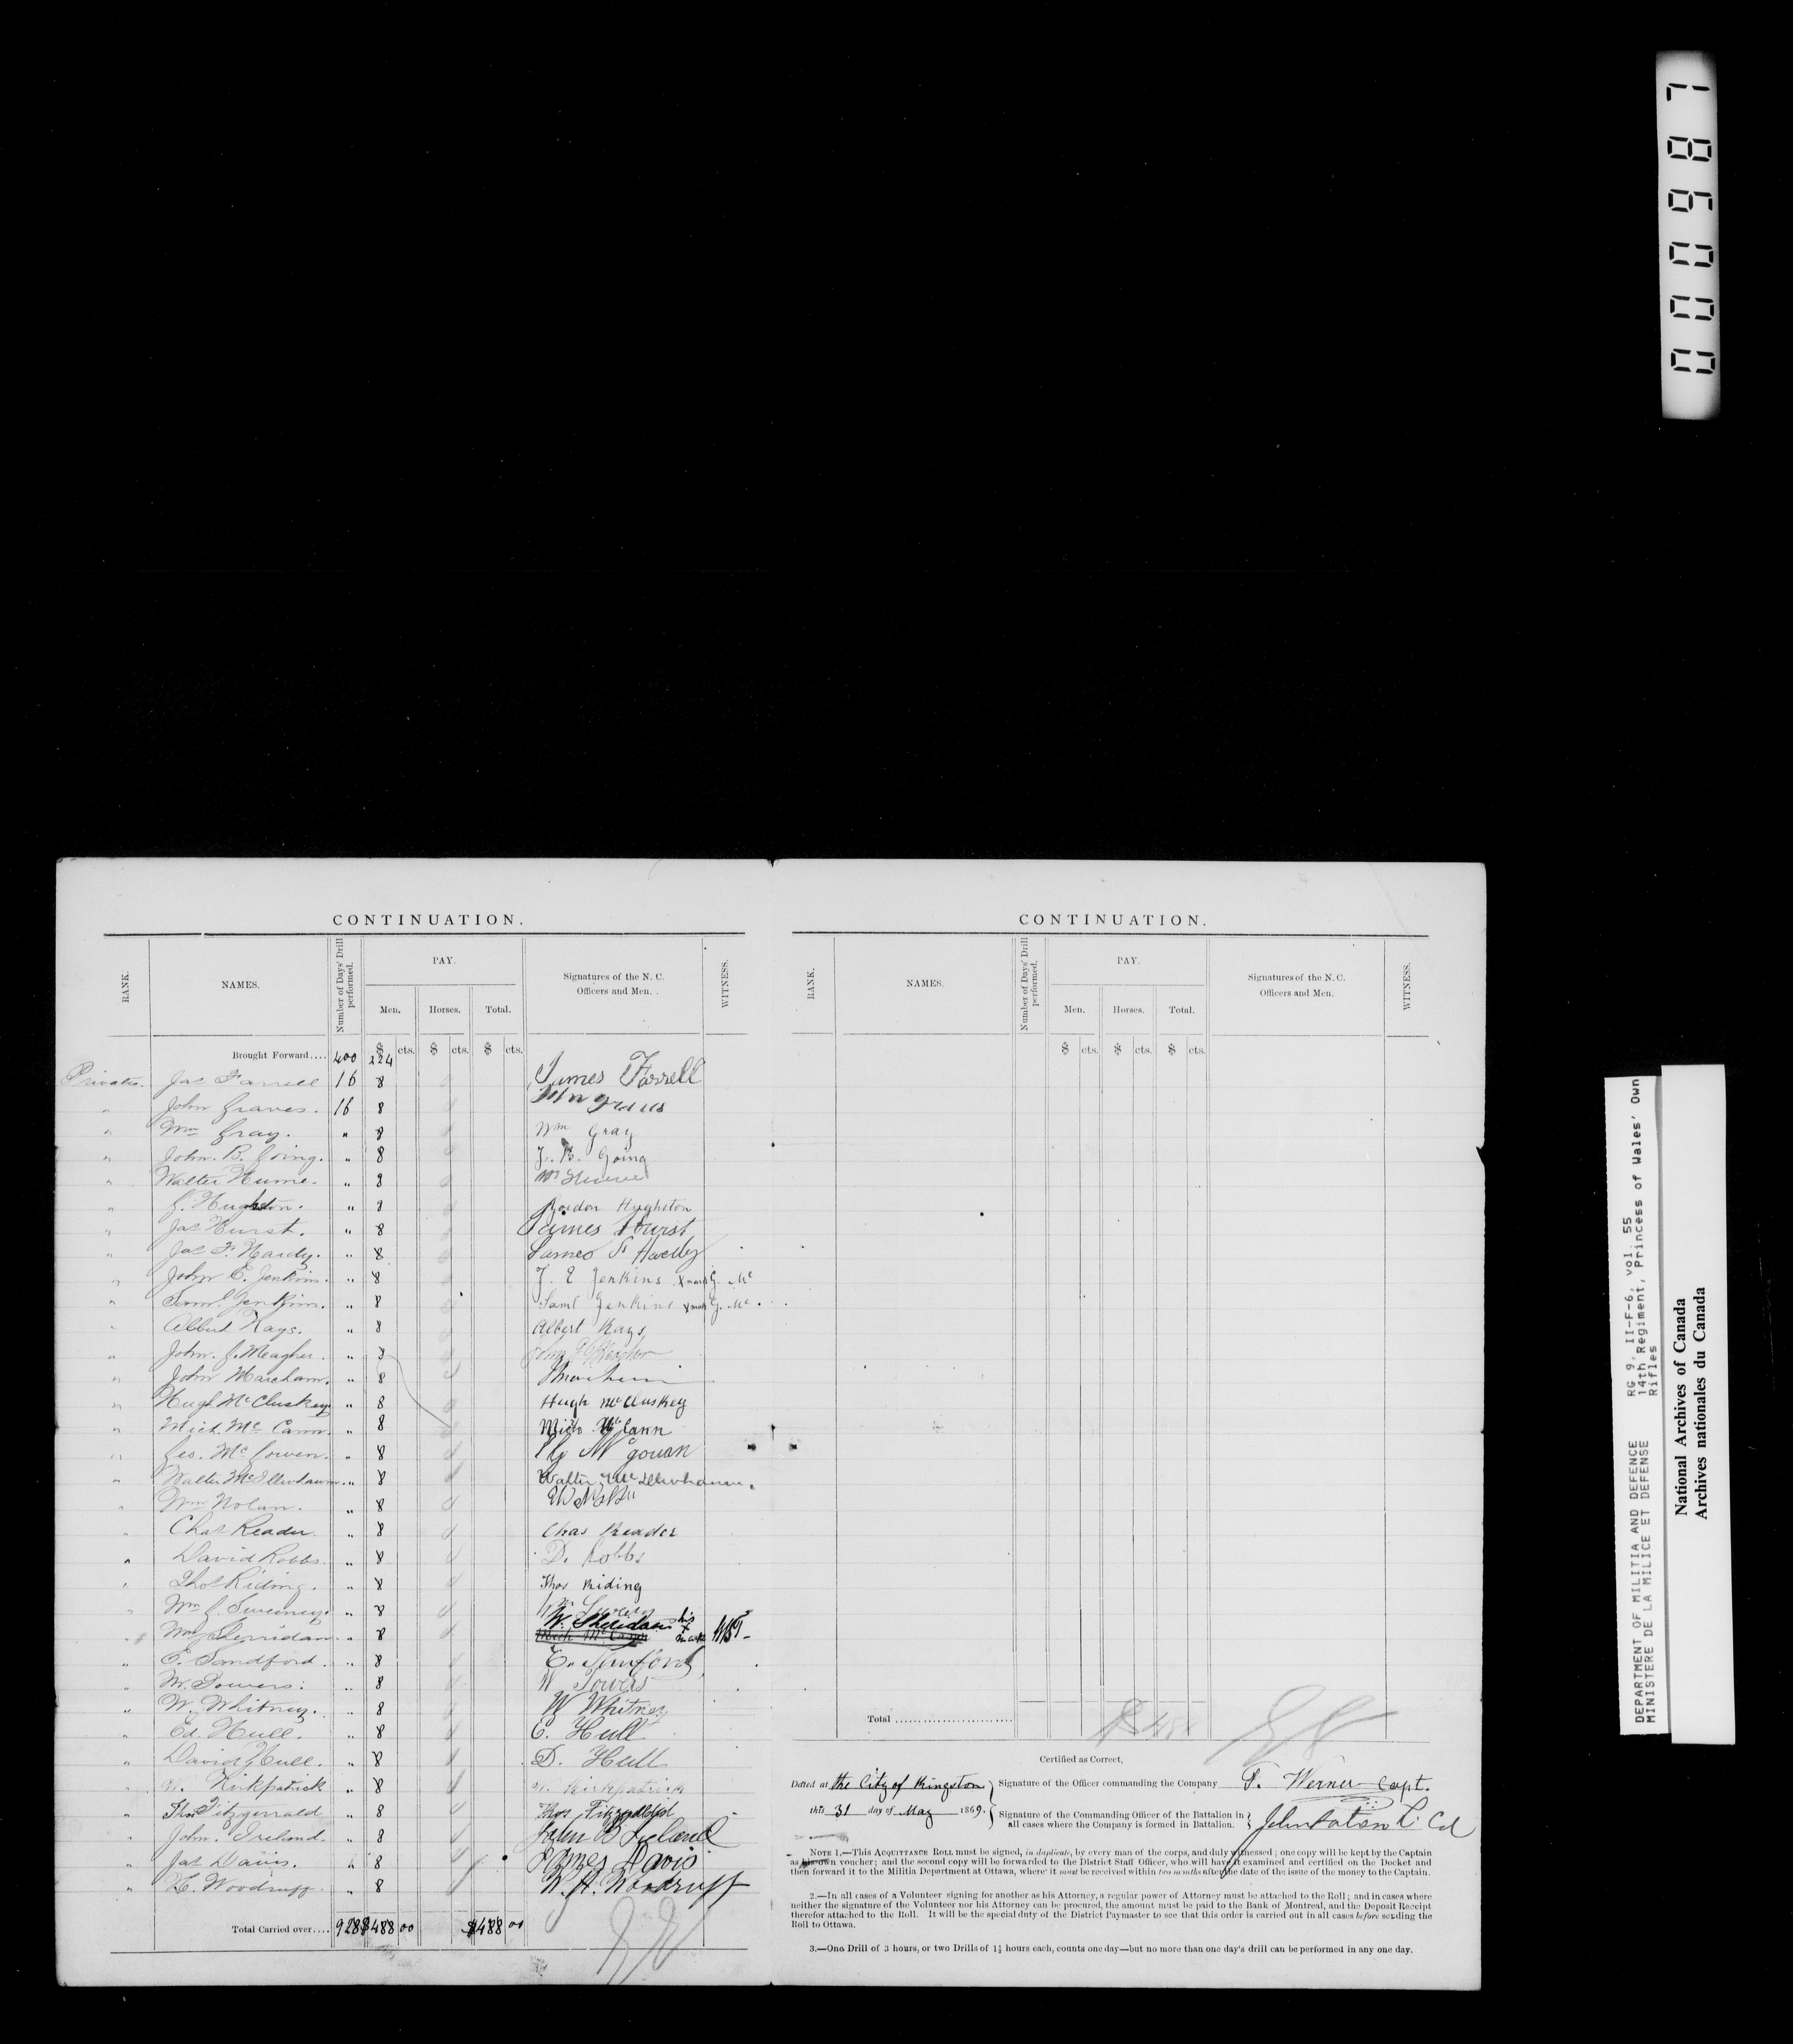 CONTINUATION.
RANK. NAMES. Number of Days' Drill performed. PAY. Men. Horses. Total. Signatures of the N. C. Officers and Men. WITNESS.
$ cts. $ cts. $ cts.
Brought Forward.... 400 224
Privates. Jas Farrell 16 8 James Farrell
" John Graves. 16 8 John Graves
" Wm Gray. " 8 Wm Gray
" John. B. Going. " 8 J. B. Going
" Walter Hume. " 8 W Hume
" G. Hughston. " 8 Gordon Hughston
" Jas Hurst. " 8 James Hurst
" Jas F. Hardy. " 8 James F Hardy
" John E. Jenkins. " 8 J. E Jenkins X mark G. Mc
" Saml Jenkins. " 8 Saml Jenkins X mark G. Mc.
" Albert Kays. " 8 Albert Kays
" John. J. Meagher. " 8 John J Meagher
" John Marcham. " 8
" Hugh McCluskey " 8 Hugh McCluskey
" Mich. Mc Cann. " 8 Mich Mc Cann
" Geo. Mc Gowen. " 8 Mc gouan
" Walter McIllwhawm. " 8 Walter
" Wm Nolan. " 8
" Chas Reader. " 8 Chas Reader
" David Robbs. " 8 D. Robbs
" Thos Riding. " 8 Thos Riding
" Wm J. Sweeney. " 8
" Wm Sherridan " 8 W. Sheridan his X mark
Mich McCann
" E. Sandford. " 8 E. Sanford
" W. Powers. " 8 W Powers
" W. Whitney. " 8 W Whitney
" Ed. Hull. " 8 E. Hull
" David Hull. " 8 D. Hull
" W. Kirkpatrick " 8 W. Kirkpatrick
" Thos Fitzgerrald " 8 Thos Fitzgerald
" John. Ireland. " 8 John B Ireland
" Jas Davis. " 8 James Davis
" H. Woodruff. " 8 W. H. Woodruff
Total Carried over.... 928 $488 00 $488 00
CONTINUATION.
RANK. NAMES. Number of Days' Drill performed. PAY. Men. Horses. Total. Signatures of the N. C. Officers and Men. WITNESS.
$ cts. $ cts. $ cts.
Total ........................ $488
Certified as Correct,
Dated at the City of Kingston } Signature of the Officer commanding the Company S. Werner Capt.
this 31 day of May 1869. { Signature of the Commanding Officer of the Battalion in all cases where the Company is formed in Battalion. } John Paton Lt. Col
NOTE 1.—This ACQUITTANCE ROLL must be signed, in duplicate, by every man of the corps, and duly witnessed; one copy will be kept by the Captain
as his own voucher; and the second copy will be forwarded to the District Staff Officer, who will have it examined and certified on the Docket and
then forward it to the Militia Department at Ottawa, where it must be received within two months after the date of the issue of the money to the Captain.
2.—In all cases of a Volunteer signing for another as his Attorney, a regular power of Attorney must be attached to the Roll; and in cases where
neither the signature of the Volunteer nor his Attorney can be procured, the amount must be paid to the Bank of Montreal, and the Deposit Receipt
therefor attached to the Roll. It will be the special duty of the District Paymaster to see that this order is carried out in all cases before sending the
Roll to Ottawa.
3.—One Drill of 3 hours, or two Drills of 1½ hours each, counts one day—but no more than one day's drill can be performed in any one day.
000987
DEPARTMENT OF MILITIA AND DEFENCE RG 9, II-F-6, vol. 55
MINISTERE DE LA MILICE ET DEFENSE 14th Regiment, Princess of Wales' Own
Rifles
National Archives of Canada
Archives nationales du Canada